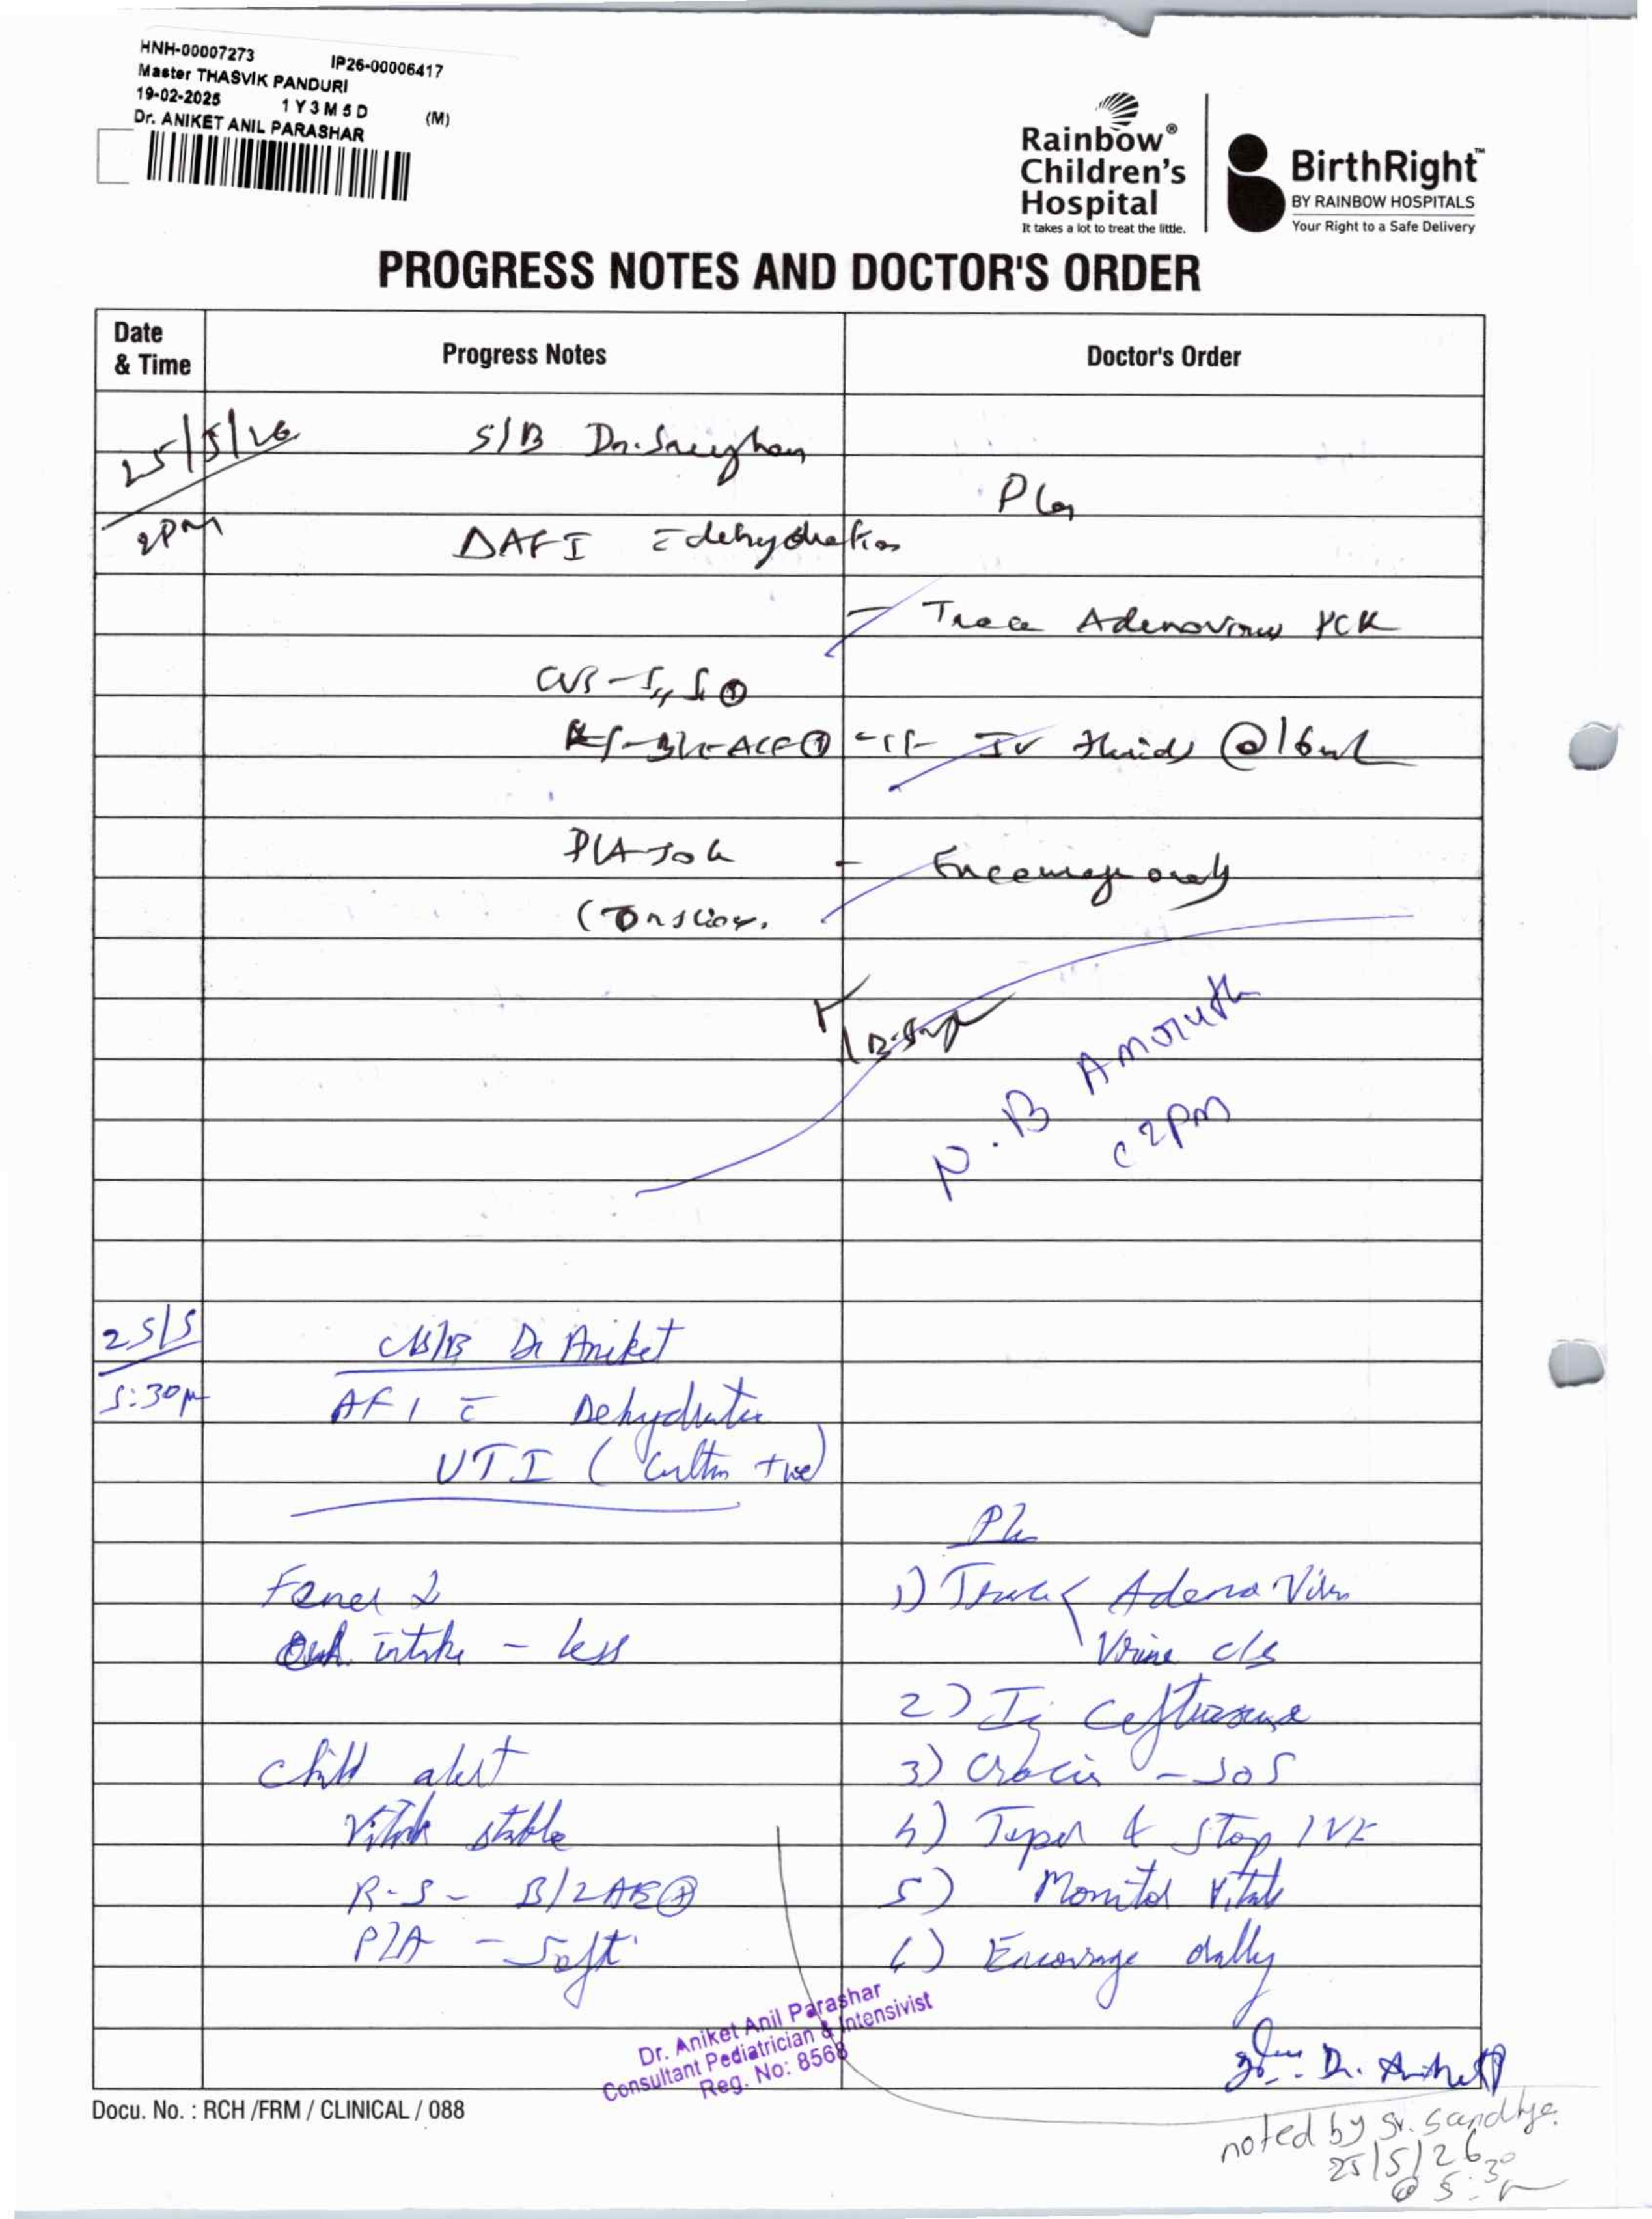 HNH-00007273 IP26-00006417
Master THASVIK PANDURI
19-02-2025 1Y3M5D (M)
Dr. ANIKET ANIL PARASHAR
Rainbow®
Children's
Hospital
It takes a lot to treat the little.
BirthRight™
BY RAINBOW HOSPITALS
Your Right to a Safe Delivery
PROGRESS NOTES AND DOCTOR'S ORDER
Date & Time
Progress Notes
Doctor's Order
25/5/26
2PM
S/B Dr.
Plan
ΔAFI c̄ dehydration
- Trace Adenovirus PCR
CVS - S₁, S₂ ⊕
IV fluids @16ml
P/A Soft
- Encourage orally
Conscious.
N.B Amoruth
2PM
25/5
5:30pm
C/S/B Dr Aniket
AFI c̄ Dehydration
UTI (Culture +ve)
Plan
Fever ↓
Oral intake - less
1) Trace Adeno Virus
Urine c/s
2) Inj Ceftriaxone
3) Crocin - SOS
Child alert
Vitals stable
4) Taper & Stop IVF
R-S - B/L AE⊕
5) Monitor Vitals
P/A - Soft
6) Encourage orally
Dr. Aniket Anil Parashar
Consultant Pediatrician & Intensivist
Reg. No: 8568
Dr. Aniket
Docu. No. : RCH /FRM / CLINICAL / 088
noted by Sr. Sandhya
25/5/26
@ 5:30